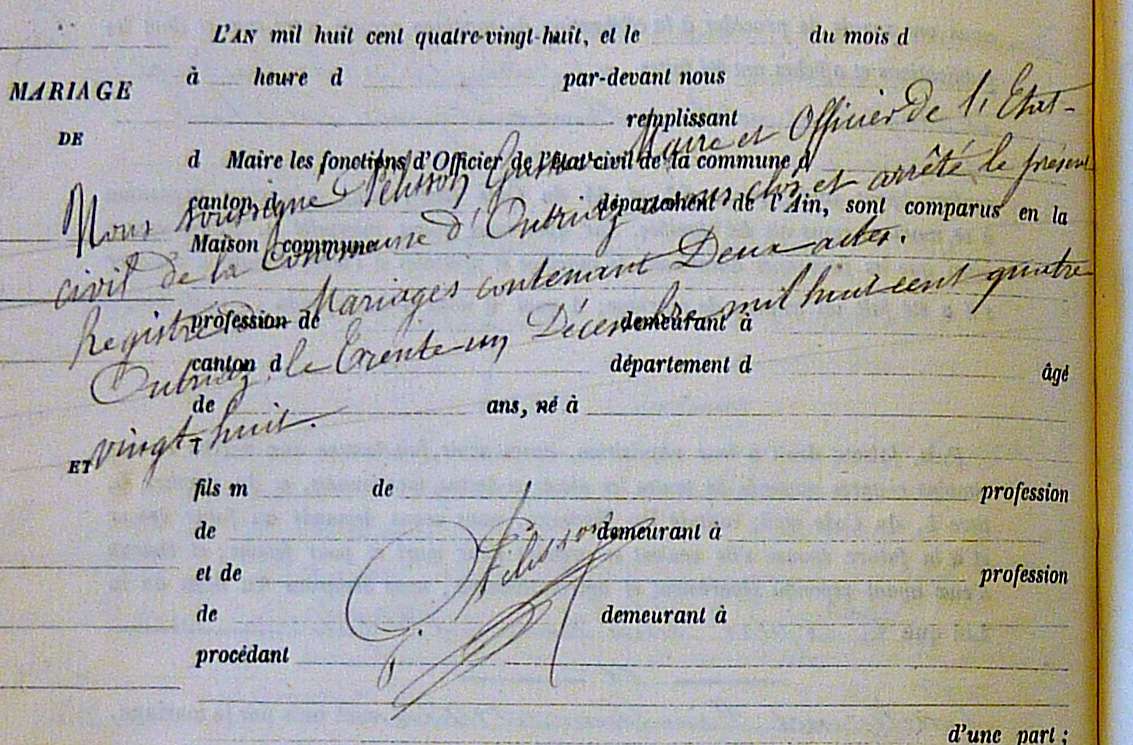 L'AN mil huit cent quatre-vingt-huit, et le du mois d
à heure d par-devant nous
MARIAGE
remplissant
DE
d Maire les fonctions d'Officier de l'état civil de la commune d
canton d département de l'Ain, sont comparus en la
Maison commune
Nous soussigné Pelisson Maire et Officier de l'Etat-
civil de la Commune d'Outriaz avons clos et arrêté le présent
Registre de Mariages contenant Deux actes.
Outriaz, le trente-un Décembre mil huit cent quatre
vingt-huit.
profession de demeurant à
canton d département d âgé
de ans, né à
ET
fils m de profession
de demeurant à
Pelisson
et de profession
de demeurant à
procédant
d'une part ;